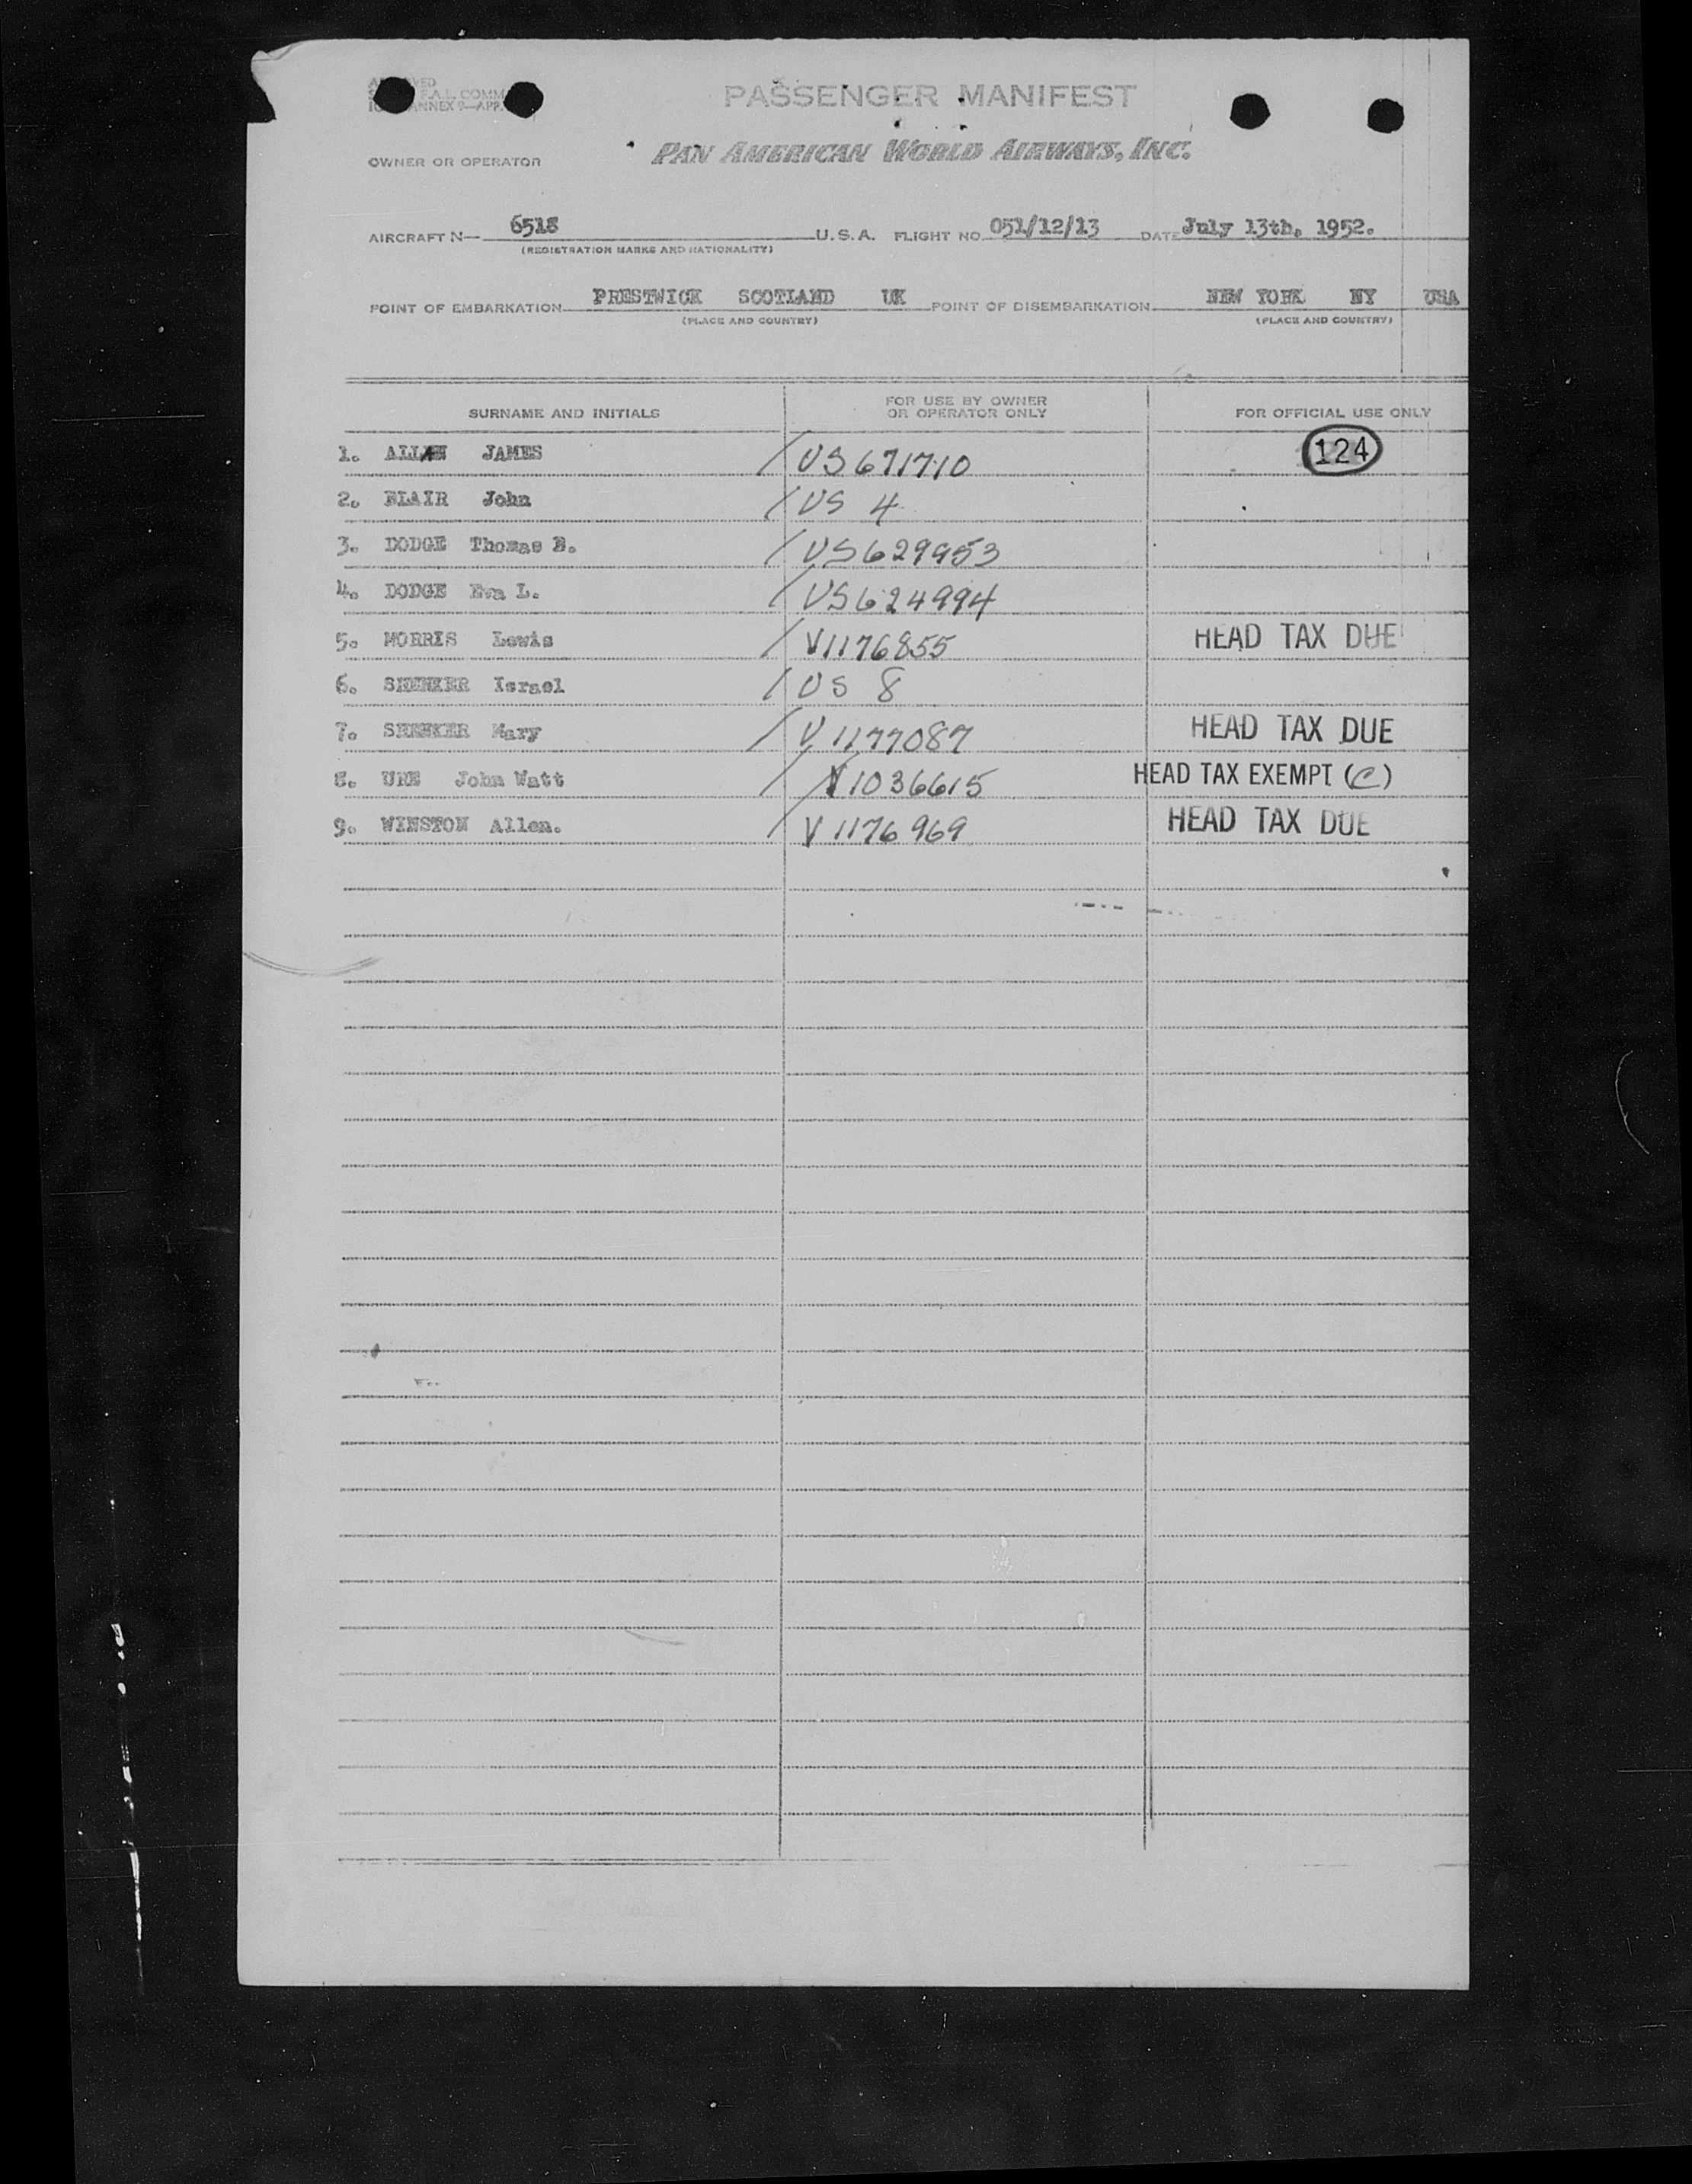 PASSENGER MANIFEST
OWNER OR OPERATOR PAN AMERICAN WORLD AIRWAYS, INC.
AIRCRAFT N— 6518 U.S.A. FLIGHT NO. 051/12/13 DATE July 13th, 1952.
(REGISTRATION MARKS AND NATIONALITY)
POINT OF EMBARKATION PRESTWICK SCOTLAND UK POINT OF DISEMBARKATION NEW YORK NY USA
(PLACE AND COUNTRY) (PLACE AND COUNTRY)
SURNAME AND INITIALS FOR USE BY OWNER OR OPERATOR ONLY FOR OFFICIAL USE ONLY
1. ALLAN JAMES / US671710 124
2. BLAIR John / US 4
3. DODGE Thomas B. / US629953
4. DODGE Eva L. / US624994
5. MORRIS Lewis / V1176855 HEAD TAX DUE
6. SHENKER Israel / US 8
7. SHENKER Mary / V1177087 HEAD TAX DUE
8. URE John Watt / V1036615 HEAD TAX EXEMPT (C)
9. WINSTON Allen. / V1176969 HEAD TAX DUE